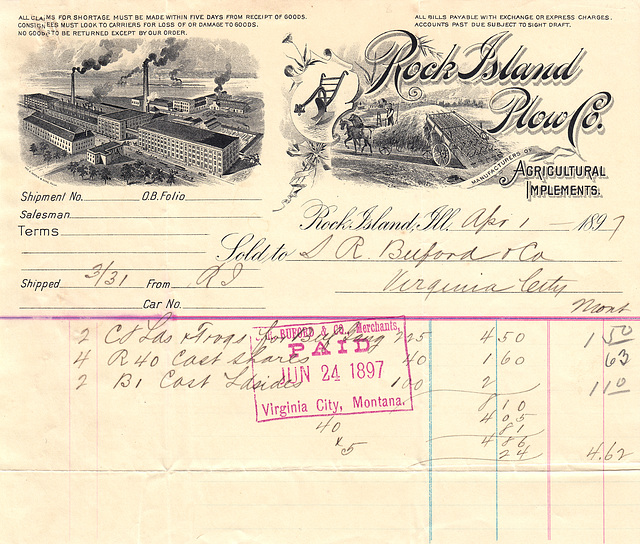 ALL CLAIMS FOR SHORTAGE MUST BE MADE WITHIN FIVE DAYS FROM RECEIPT OF GOODS.
CONSIGNEES MUST LOOK TO CARRIERS FOR LOSS OF OR DAMAGE TO GOODS.
NO GOODS TO BE RETURNED EXCEPT BY OUR ORDER.
ALL BILLS PAYABLE WITH EXCHANGE OR EXPRESS CHARGES.
ACCOUNTS PAST DUE SUBJECT TO SIGHT DRAFT.
Rock Island
Plow Co.
MANUFACTURERS OF
AGRICULTURAL
IMPLEMENTS.
Shipment No. O.B. Folio
Salesman
Terms
Rock Island, Ill. Apr 1 1897
Sold to S. R. Buford & Co
Virginia City
Mont
Shipped 3/31 From R I
Car No.
2 Frogs for 225 4 50 1 50
4 R 40 Cast Shares 40 1 60 63
2 B1 Cast Lsides 100 2 110
8 10
4 05
81
4 86
24 4.62
40
x 5
BUFORD & CO., Merchants,
PAID
JUN 24 1897
Virginia City, Montana.